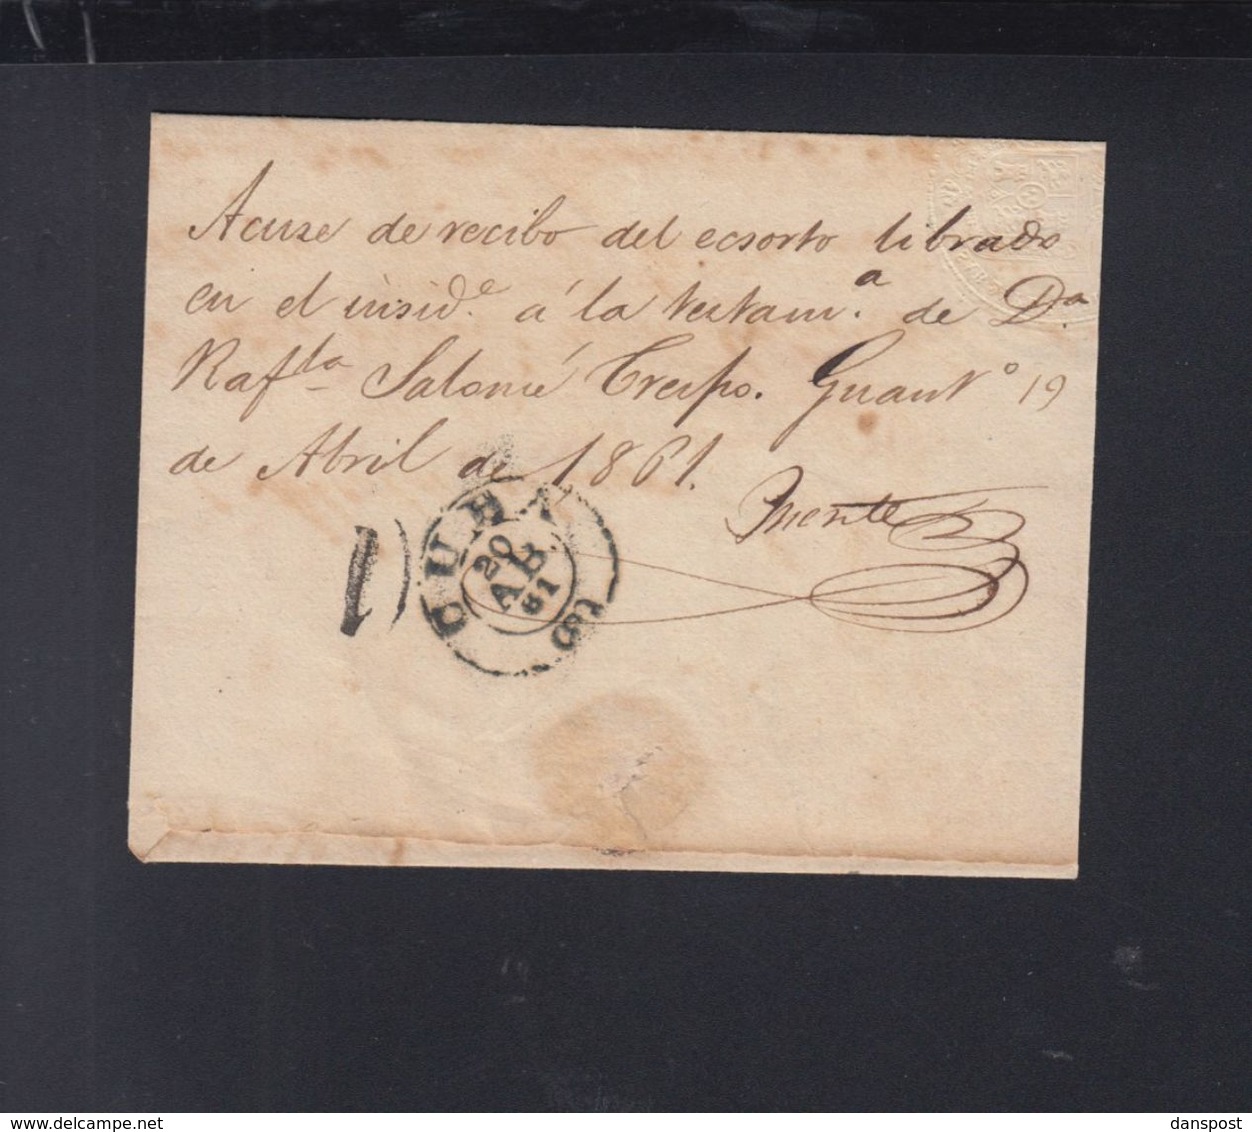 Acuse de recibo del ecsorto librado
en el insid.e á la testam.a de D.a
Raf.la Salomé Crespo. Guant.o 19
de Abril de 1861.
Puente
CUBA
20
AB.
61
danspost